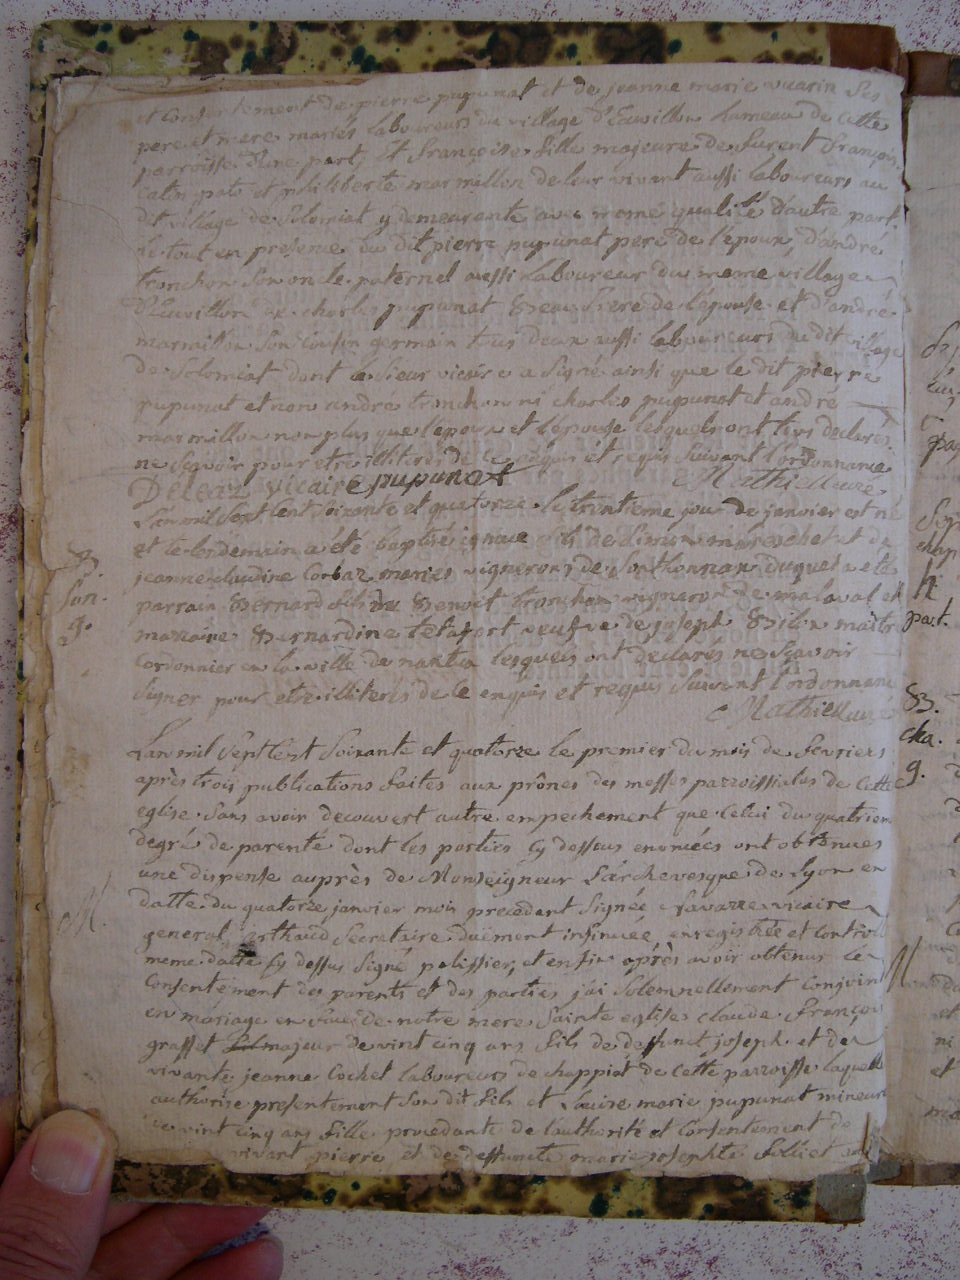 et consentement de pierre pupunat et de jeanne marie vuarin ses
pere et mere mariés laboureurs du village d'Euvillon hameau de cette
parroisse d'une part, Et françoise fille majeure de furent françois
Catin pate et philiberte marmillon de leur vivant aussi laboureurs au
dit village de Solomiat y demeurante avec meme qualité d'autre part
le tout en presence du dit pierre pupunat pere de l'epoux, d'andré
tronchon son oncle paternel aussi laboureur du meme village
d'Euvillon de charles pupunat beau frere de l'epouse et d'andré
marmillon son cousin germain tous deux aussi laboureurs du dit village
de Solomiat dont le sieur vicaire a signé ainsi que le dit pierre
pupunat et non andré tronchon ni charles pupunat et andré
marmillon non plus que l'epoux et l'epouse lesquels ont tous declarés
ne sçavoir pour etre illiterés de ce enquis et requis suivant l'ordonnance
Delerz vicaire pupunat Mathieu curé
L'an mil sept cent soixante et quatorze le trentieme jour de janvier est né
et le lendemain a été baptisé ignace fils de Simon et de
jeanne claudine Corbaz mariés vignerons de Sonthonnax duquel a eté
parrain Bernard fils de Benoit tronchon vigneron de malaval et
B.
Son.
g.
marraine Bernardine tetafort veufve de joseph Bilon maitre
Cordonnier en la ville de nantua lesquels ont declarés ne sçavoir
signer pour etre illiterés de ce enquis et requis suivant l'ordonnance
Mathieu curé
L'an mil sept cent soixante et quatorze le premier du mois de fevriers
après trois publications faites aux prônes des messes parroissiales de cette
eglise sans avoir decouvert autre empechement que celui du quatrieme
degré de parenté dont les parties cy dessous enoncées ont obtenues
une dispense auprès de Monseigneur l'archevesque de Lyon en
datte du quatorze janvier mois precedent signée Navarre vicaire
M.
general, berthaud Secretaire duëment insinuée, enregistrée et controlé
meme datte cy dessus signé pelissier, et enfin après avoir obtenus le
Consentement des parents et des parties j'ai solemnellement conjoint
en mariage en face de notre mere Sainte eglise claude françois
grasset majeur de vint cinq ans fils de deffunct joseph et de
vivante jeanne Cochet laboureurs de chappiat de cette parroisse laquelle
authorise presentement son dit fils et Louise marie pupunat mineure
de vint cinq ans fille procedante de l'authorité et consentement de
vivant pierre et de deffuncte marie josephte